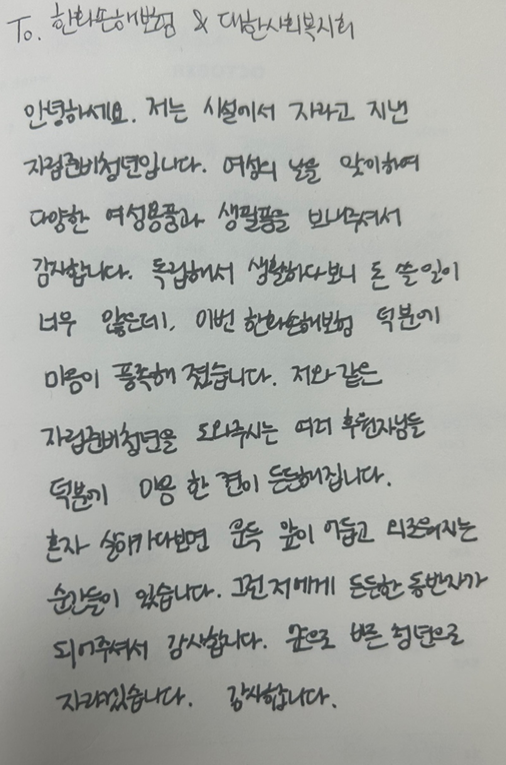 To. 한화손해보험 & 대한사회복지회
안녕하세요. 저는 시설에서 자라고 지낸
자립준비청년입니다. 여성의 날을 맞이하여
다양한 여성용품과 생필품을 보내주셔서
감사합니다. 독립해서 생활하다보니 돈 쓸 일이
너무 많은데, 이번 한화손해보험 덕분에
마음이 풍족해 졌습니다. 저와 같은
자립준비청년을 도와주시는 여러 후원자님들
덕분에 마음 한 켠이 든든해집니다.
혼자 살아가다보면 문득 앞이 어둡고 외로워지는
순간들이 있습니다. 그런 저에게 든든한 동반자가
되어주셔서 감사합니다. 앞으로 바른 청년으로
자라겠습니다. 감사합니다.